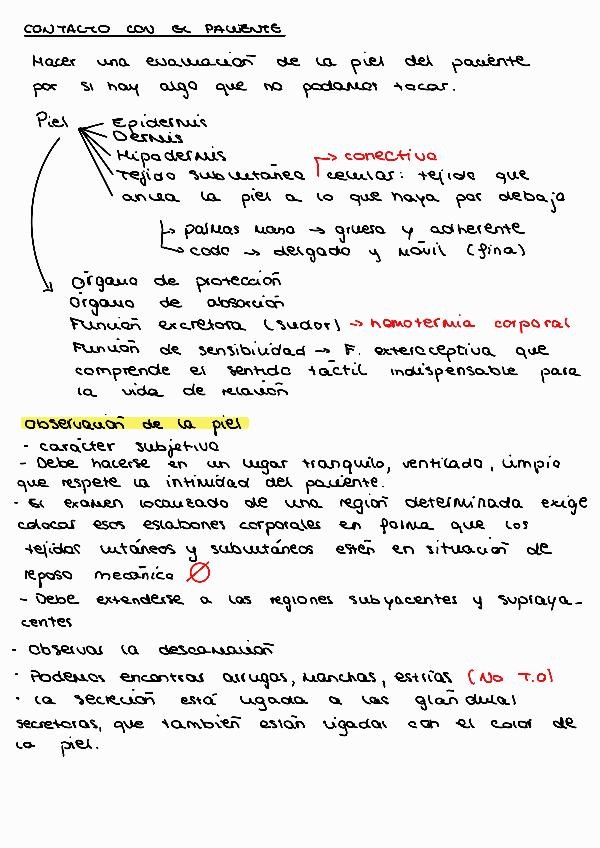 CONTACTO CON EL PACIENTE
Hacer una evaluación de la piel del paciente
por si hay algo que no podamos tocar.
Piel
Epidermis
Dermis
Hipodermis
→ conectivo
Tejido subcutánea celular: tejido que
ancla la piel a lo que haya por debajo
→ palmas mano → gruesa y adherente
→ codo → delgado y móvil (fina)
Órgano de protección
Órgano de absorción
Función excretora (sudor) → homotermia corporal
Función de sensibilidad → F. exteroceptiva que
comprende el sentido táctil indispensable para
la vida de relación
Observación de la piel
- carácter subjetivo
- Debe hacerse en un lugar tranquilo, ventilado, limpio
que respete la intimidad del paciente.
· El examen localizado de una región determinada exige
colocar esos eslabones corporales en forma que los
tejidos cutáneos y subcutáneos estén en situación de
reposo mecánico Ø
- Debe extenderse a las regiones subyacentes y supraya-
centes
- Observar la descamación
· Podemos encontrar arrugas, manchas, estrías (No T.O)
· La secreción está ligada a las glándulas
secretoras, que también están ligadas con el color de
la piel.